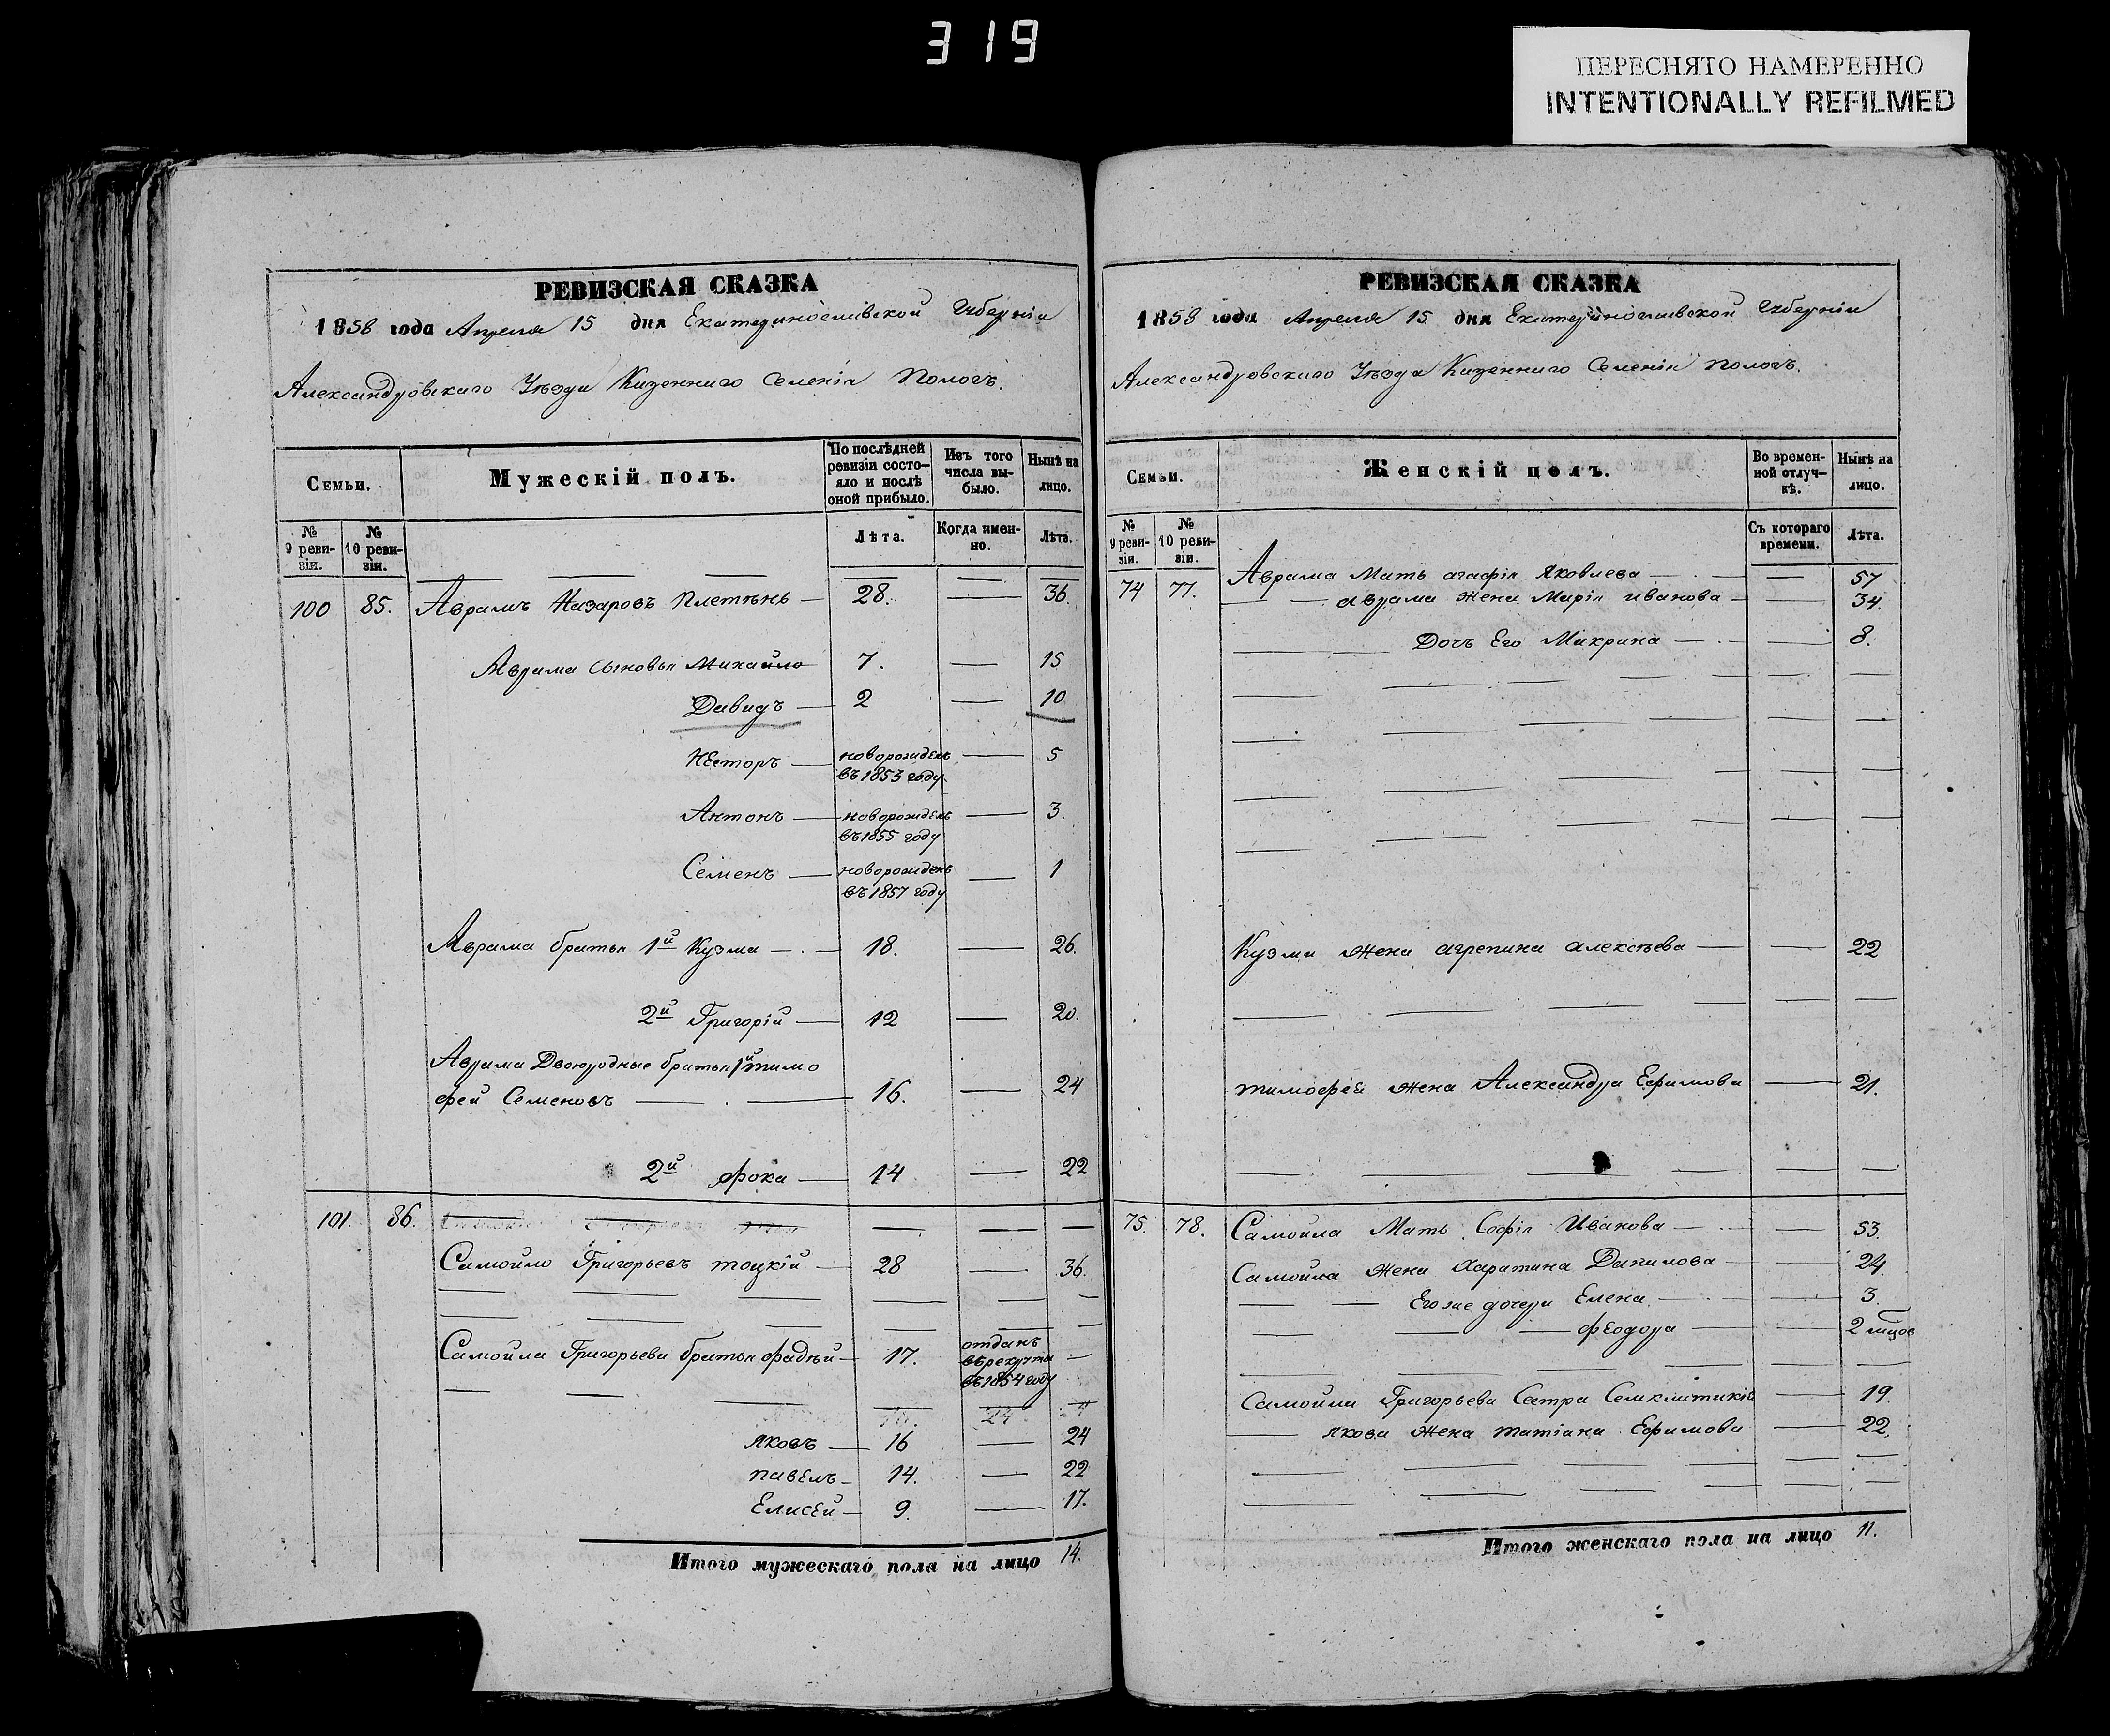 319
ПЕРЕСНЯТО НАМЕРЕННО
INTENTIONALLY REFILMED
РЕВИЗСКАЯ СКАЗКА
1858 года Апреля 15 дня Екатеринославской Губерніи
Александровскаго Уѣзда Казеннаго Селенія Пологъ.
Семьи.
Мужескій полъ.
По послѣдней ревизіи состояло и послѣ оной прибыло.
Изъ того числа выбыло.
Нынѣ на лицо.
№ 9 ревизіи.
№ 10 ревизіи.
Лѣта.
Когда именно.
Лѣта.
100 85. Аврамъ Назаровъ Плетѣнь 28. 36.
Аврама сыновья Михайло 7. 15
Давидъ 2 10
Несторъ новорожденъ въ 1853 году 5
Антонъ новорожденъ въ 1855 году 3
Семенъ новорожденъ въ 1857 году 1
Аврама братья 1й Кузма 18. 26.
2й Григорій 12 20.
Аврама Двоюродные братья 1й тимо
фей Семеновъ 16. 24
2й фока 14 22
101. 86.
Самойло Григорьевъ тоцкій 28 36.
Самойла Григорьева братья фадѣй 17. отданъ въ рекруты въ 1854 году
яковъ 16 24
павелъ 14. 22
Елисей 9. 17.
Итого мужескаго пола на лицо 14.
РЕВИЗСКАЯ СКАЗКА
1858 года Апреля 15 дня Екатеринославской Губерніи
Александровскаго Уѣзда Казеннаго Селенія Пологъ.
Семьи.
Женскій полъ.
Во временной отлучкѣ.
Нынѣ на лицо.
№ 9 ревизіи.
№ 10 ревизіи.
Съ котораго времени.
Лѣта.
74 77. Аврама Мать агафія Яковлева 57
аврама жена Марія иванова 34.
Дочь Его Макрина 8.
Кузми жена агрепина алексѣева 22
тимофея жена Александра Ефимова 21.
75. 78. Самойла Мать Софія Иванова 53.
Самойла жена Харатина Данилова 24.
Его же дочери Елена 3
феодора 2
Самойла Григорьева Сестра 19.
якова жена татіана Ефимова 22.
Итого женскаго пола на лицо 11.